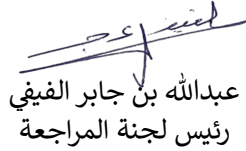 عبدالله بن جابر الفيفي
رئيس لجنة المراجعة